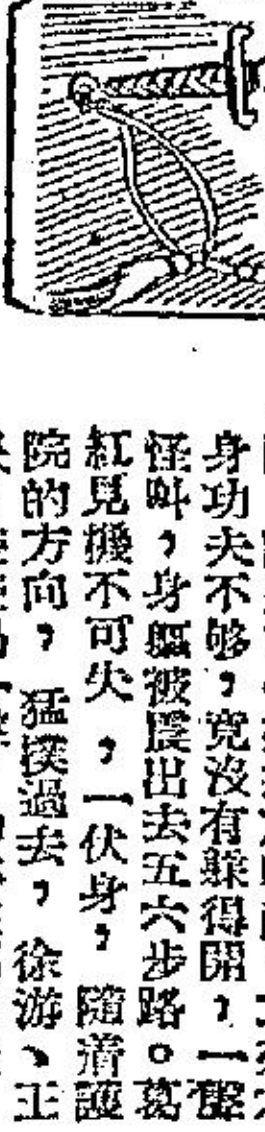 身功夫不够，竟沒有躲得開，一聲
怪叫，身軀被震出去五六步路。葛
紅見機不可失，一伏身，隨着護
院的方向，猛撲過去，徐游、王